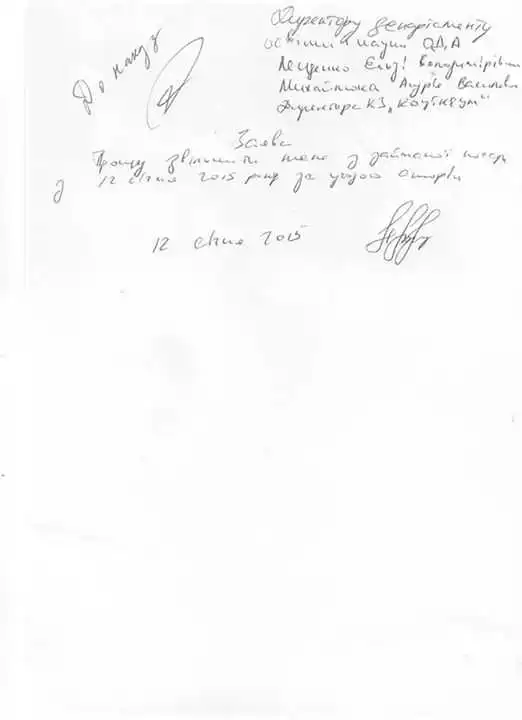 До наказу
Директору департаменту
освіти і науки ОДА
Лещенко Володимирівні
Михайлюка Андрія Васильови
директора КЗ „
Заява
Прошу звільнити мене з займаної посади
з 12 січня 2015 року за угодою сторін
12 січня 2015